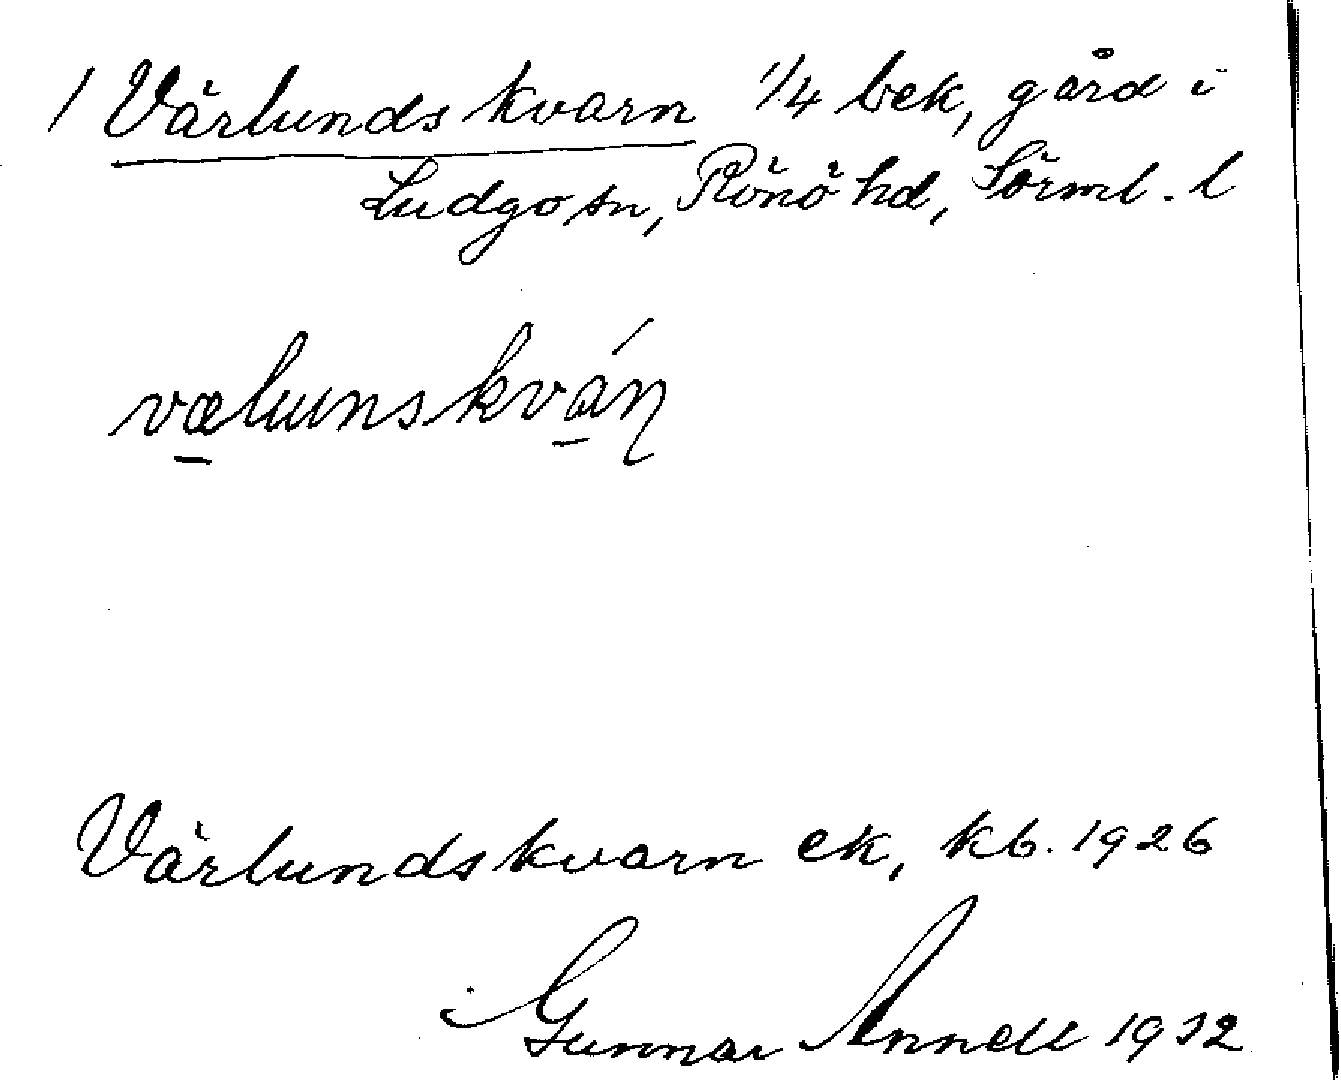 1 Vårlundskvarn 1/4 bek, gård i
Ludgo sn, Rönö hd, Sörml. l
vælunskván
Vårlundskvarn ek, kb. 1926
Gunnar Annell 1932